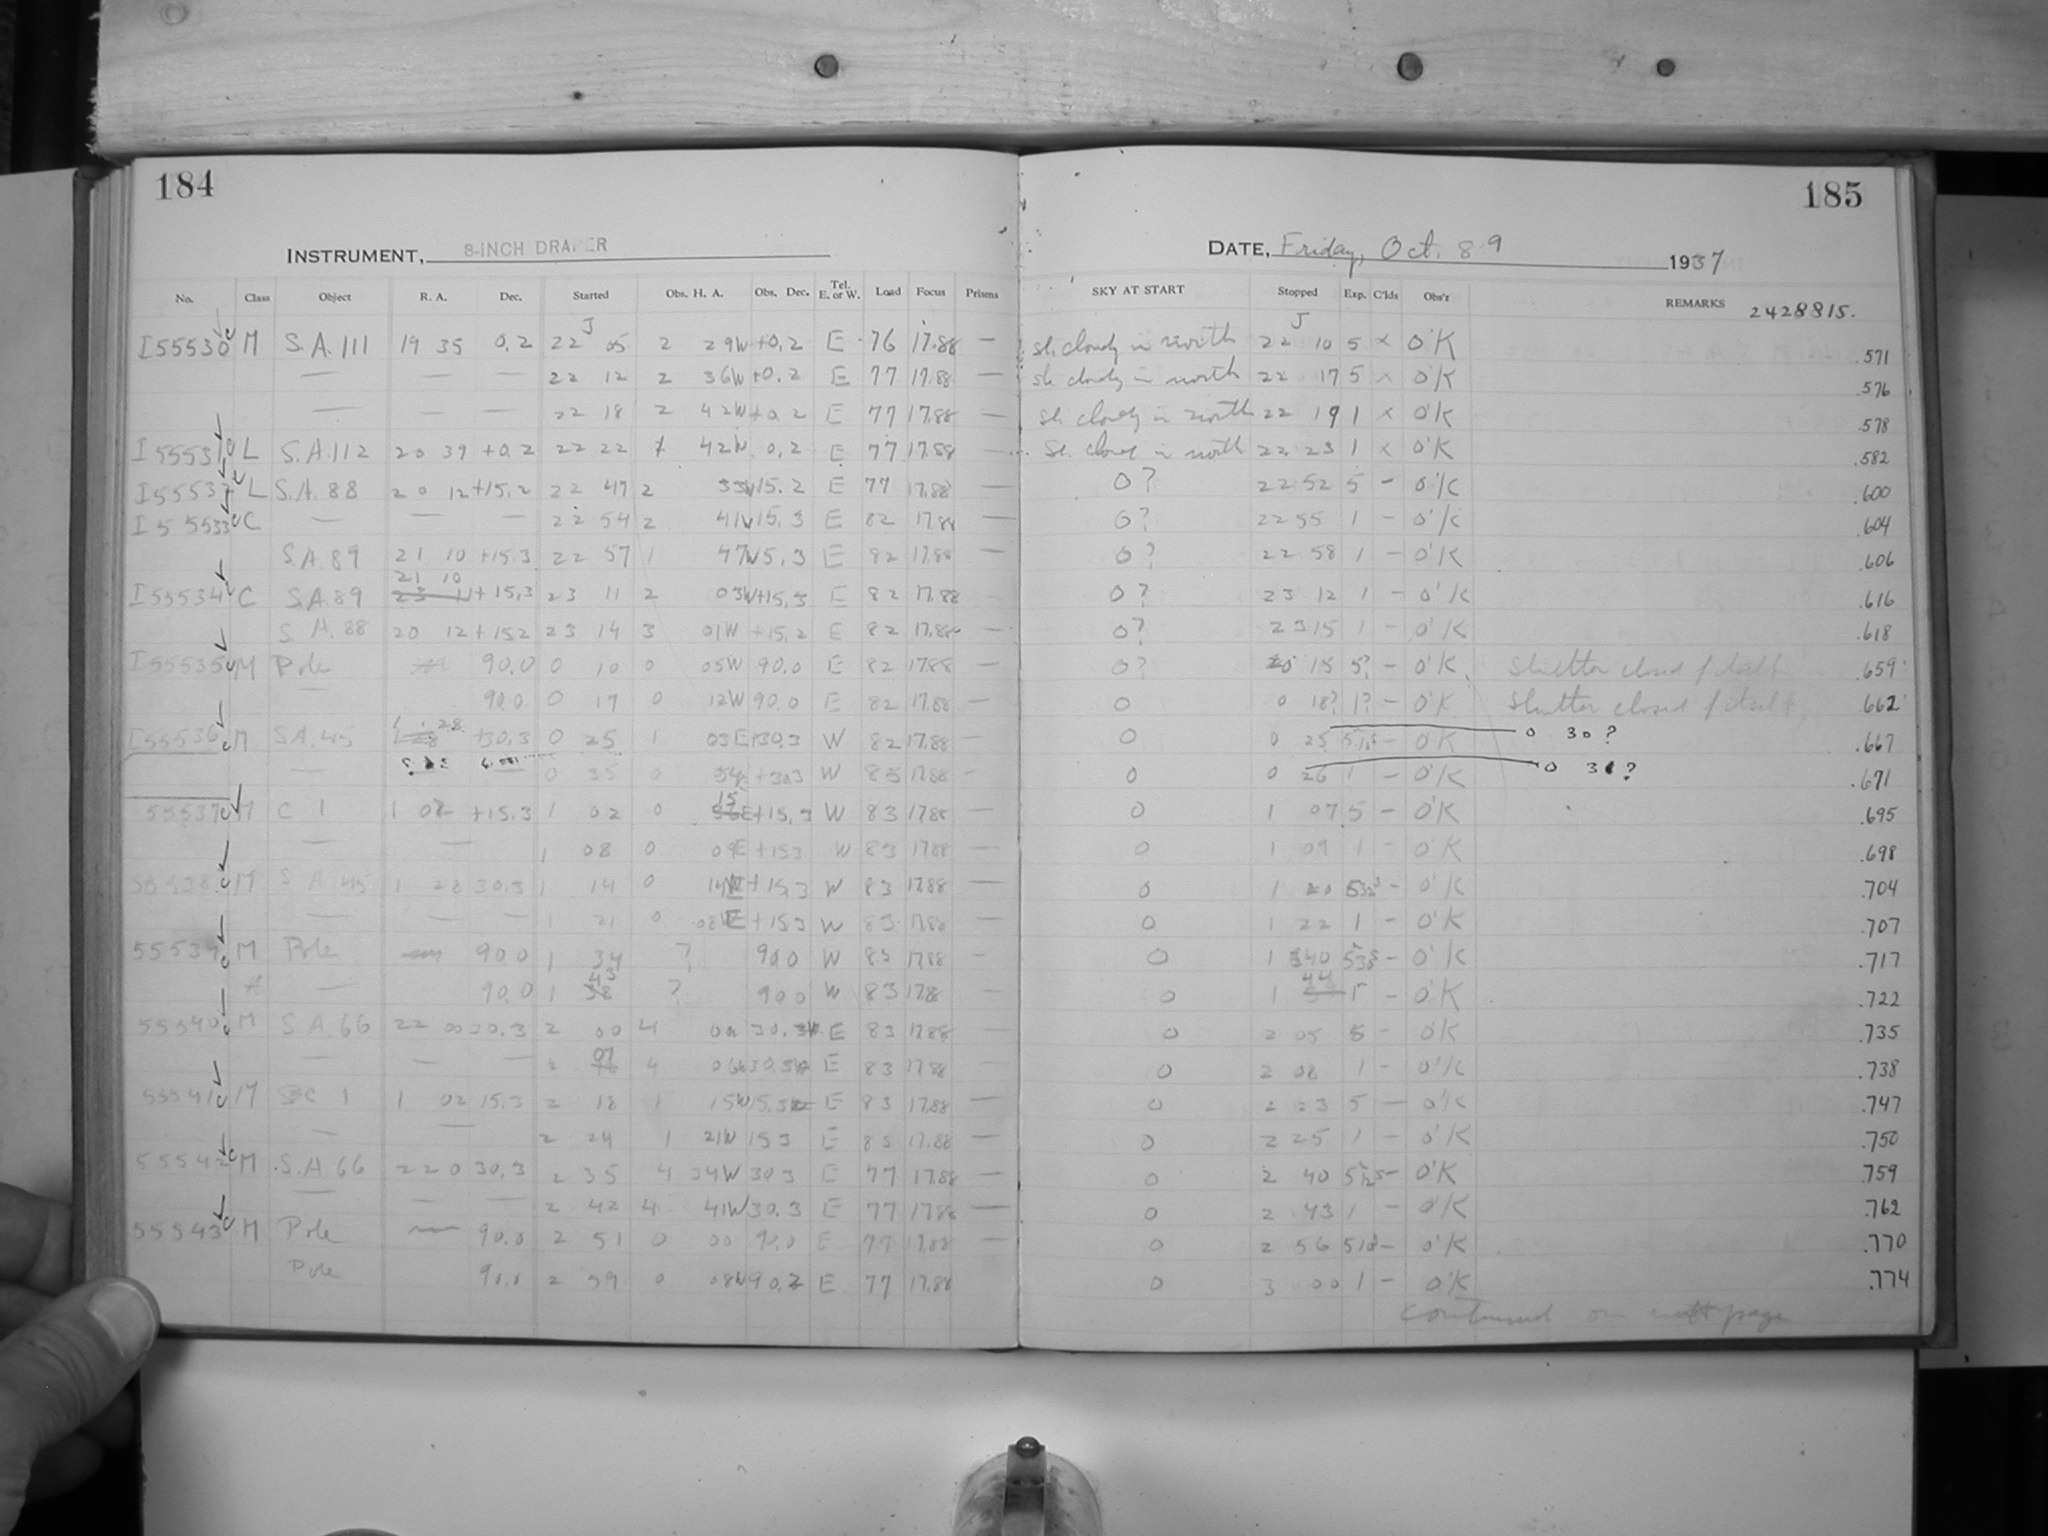 184
185
INSTRUMENT, 8-INCH DRAPER
DATE, Friday, Oct. 8 9 1937
No. Class Object R. A. Dec. Started Obs. H. A. Obs. Dec. Tel. E. or W. Load Focus Prisms SKY AT START Stopped Exp. C'lds Obs'r REMARKS 2428815.
J J
I55530 M S.A.111 19 35 0.2 22 05 2 29W +0.2 E 76 17.88 — sl. cloudy in north 22 10 5 x O'K .571
— — — 22 12 2 36W +0.2 E 77 17.88 — sl. cloudy in north 22 17 5 x O'K .576
— — — 22 18 2 42W +0.2 E 77 17.88 — sl. cloudy in north 22 19 1 x O'K .578
I55531 L S.A.112 20 39 +0.2 22 22 1 42W 0.2 E 77 17.88 — in north 22 23 1 x O'K .582
I55532 L S.A. 88 20 12 +15.2 22 47 2 15.2 E 77 17.88 — 0? 22 52 5 – O'K .600
I55533 C — — — 22 54 2 41W 15.3 E 82 17.88 — 0? 22 55 1 – O'K .604
S.A.89 21 10 +15.3 22 57 1 47W 15.3 E 82 17.88 — 0? 22 58 1 – O'K .606
21 10
I55534 C S.A.89 +15.3 23 11 2 03W +15.3 E 82 17.88 — 0? 23 12 1 – O'K .616
S.A.88 20 12 +15.2 23 14 3 01W +15.2 E 82 17.88 — 0? 23 15 1 – O'K .618
I55535 M Pole 90.0 0 10 0 05W 90.0 E 82 17.88 — 0? 0 15 5? – O'K Shutter closed / itself .659
— 90.0 0 17 0 12W 90.0 E 82 17.88 — 0 0 18? 1? – O'K Shutter closed / itself, .662
1 28
I55536 M S.A.45 +30.3 0 25 1 03E +30.3 W 82 17.88 — 0 0 25 – O'K 0 30? .667
— — 0 35 0 +30.3 W 83 17.88 – 0 0 26 1 – O'K 0 31? .671
55537 M C 1 1 02 +15.3 1 02 0 15 +15.3 W 83 17.88 — 0 1 07 5 – O'K .695
— — 1 08 0 09E +15.3 W 83 17.88 — 0 1 09 1 – O'K .698
55538 M S.A.45 1 28 30.3 1 14 0 +15.3 W 83 17.88 — 0 1 20 – O'K .704
— — — 1 21 0 08E +15.3 W 83 17.88 — 0 1 22 1 – O'K .707
55539 M Pole 90.0 1 34 ? 90.0 W 83 17.88 — 0 1 40 – O'K .717
— 90.0 1 43 ? 90.0 W 83 17.8 — 0 1 44 1 – O'K .722
55540 M S.A.66 22 00 30.3 2 00 4 30.3 E 83 17.88 — 0 2 05 5 – O'K .735
— — — 2 07 4 E 83 17.88 — 0 2 08 1 – O'K .738
55541 M C 1 1 02 15.3 2 18 1 15W E 83 17.88 — 0 2 23 5 — O'K .747
— — 2 24 1 21W 15.3 E 83 17.88 — 0 2 25 1 – O'K .750
55542 M S.A 66 22 0 30.3 2 35 4 34W 30.3 E 77 17.88 — 0 2 40 – O'K .759
— — — 2 42 4 41W 30.3 E 77 17.88 — 0 2 43 1 – O'K .762
55543 M Pole — 90.0 2 51 0 00 90.0 E 77 17.88 0 2 56 – O'K .770
Pole 90.0 2 59 0 08W 90.2 E 77 17.88 0 3 00 1 – O'K .774
continued on next page